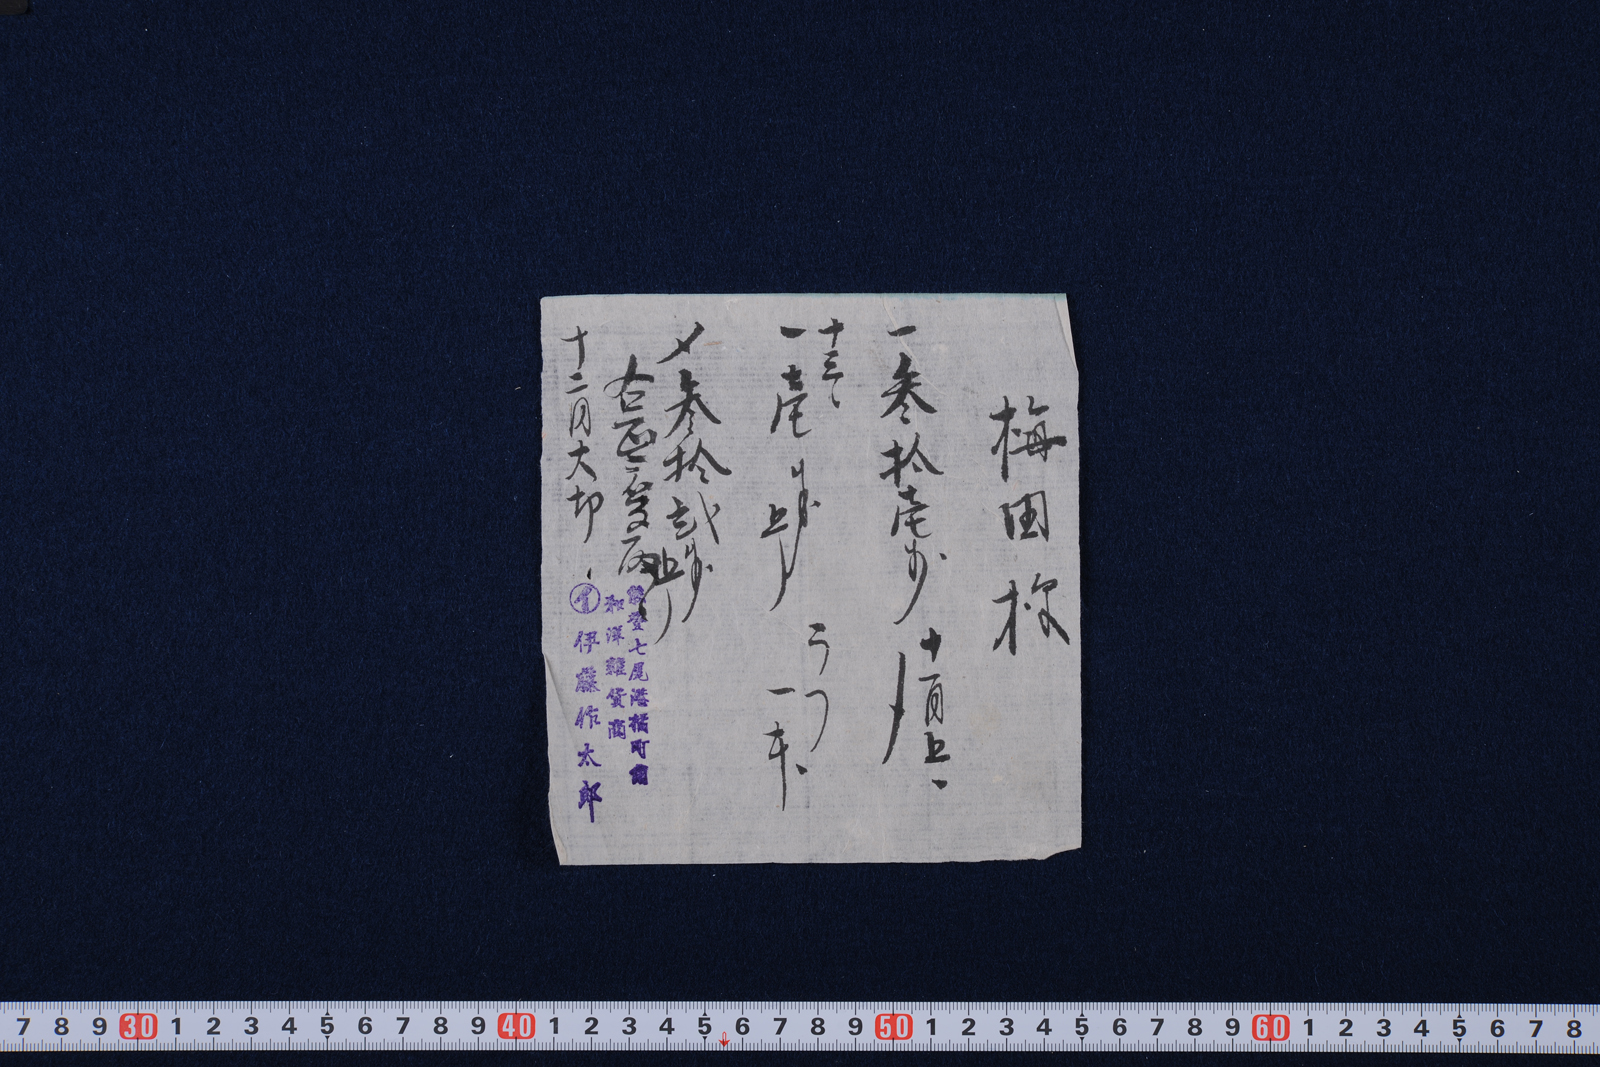 梅田様
一参拾壱銭
十一月上
十三
一壱銭上リ
一本
〆参拾弐銭上リ
右正ニ受取
十二月大切
能登七尾港橘町
和洋雑貨商
伊藤作太郎
7 8 9 30 1 2 3 4 5 6 7 8 9 40 1 2 3 4 5 6 7 8 9 50 1 2 3 4 5 6 7 8 9 60 1 2 3 4 5 6 7 8